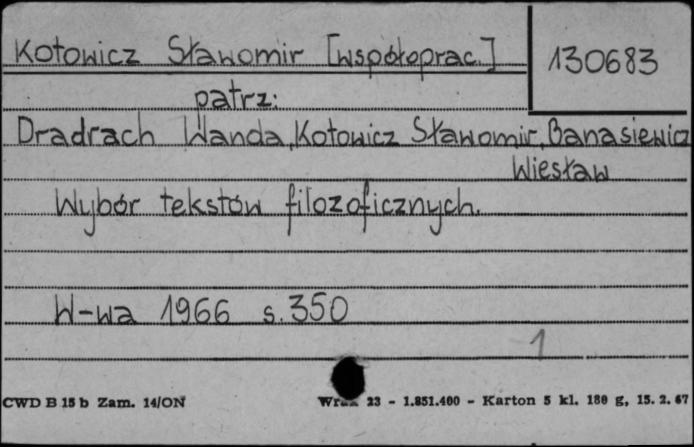 Kotowicz Sławomir [współoprac.] 130683
patrz:
Dradrach Wanda, Kotowicz Sławomir, Banasiewicz
Wiesław
Wybór tekstów filozoficznych.
W-wa 1966 s. 350
1
CWD B 15 b Zam. 14/ON 23 - 1.851.400 - Karton 5 kl. 180 g, 15. 2. 67